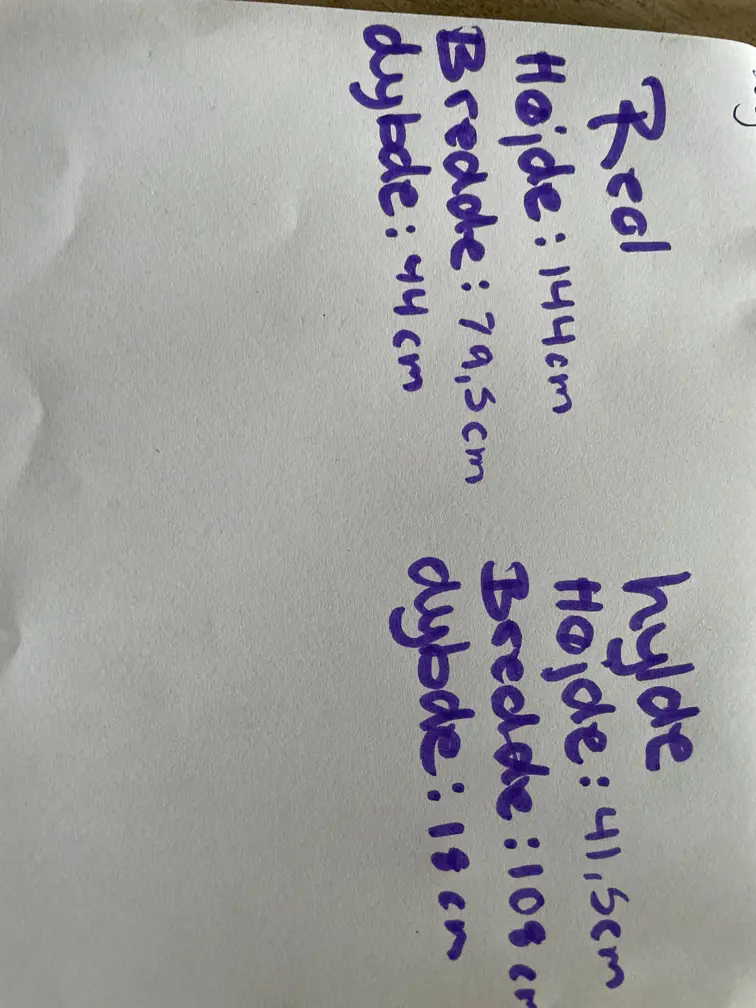 Reol
Højde: 144cm
Bredde: 79,5cm
dybde: 44cm
hylde
Højde: 41,5cm
Bredde: 108 cm
dybde: 18 cm